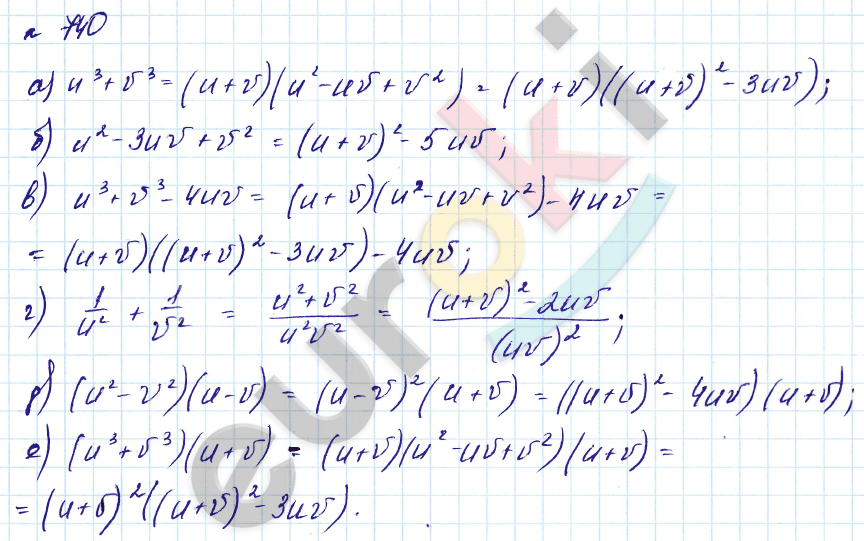 н 740
а) u³+v³=(u+v)(u²-uv+v²) = (u+v)((u+v)²-3uv);
б) u²-3uv+v² = (u+v)²-5uv;
в) u³+v³-4uv = (u+v)(u²-uv+v²)-4uv =
= (u+v)((u+v)²-3uv)-4uv;
г) 1/u² + 1/v² = (u²+v²)/(u²v²) = ((u+v)²-2uv)/(uv)²;
д) (u²-v²)(u-v) = (u-v)²(u+v) = ((u+v)²-4uv)(u+v);
е) (u³+v³)(u+v) = (u+v)(u²-uv+v²)(u+v) =
= (u+v)²((u+v)²-3uv).
euroki